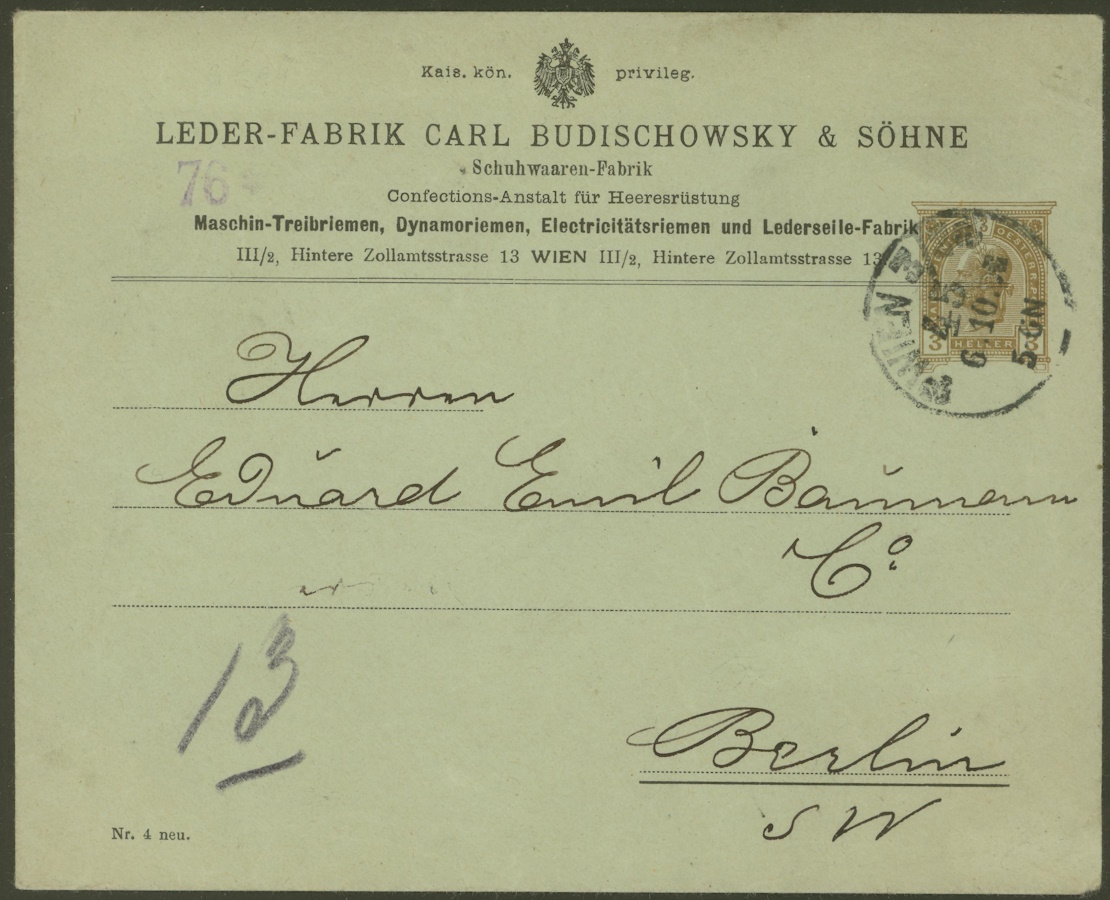 Kais. kön. privileg.
LEDER-FABRIK CARL BUDISCHOWSKY & SÖHNE
76
Schuhwaaren-Fabrik
Confections-Anstalt für Heeresrüstung
Maschin-Treibriemen, Dynamoriemen, Electricitätsriemen und Lederseile-Fabrik
III/2, Hintere Zollamtsstrasse 13 WIEN III/2, Hintere Zollamtsstrasse 13
WIEN
6.10.
5
3 HELLER 3
Herren
Eduard Emil Baumann
Co.
13
Berlin
SW
Nr. 4 neu.